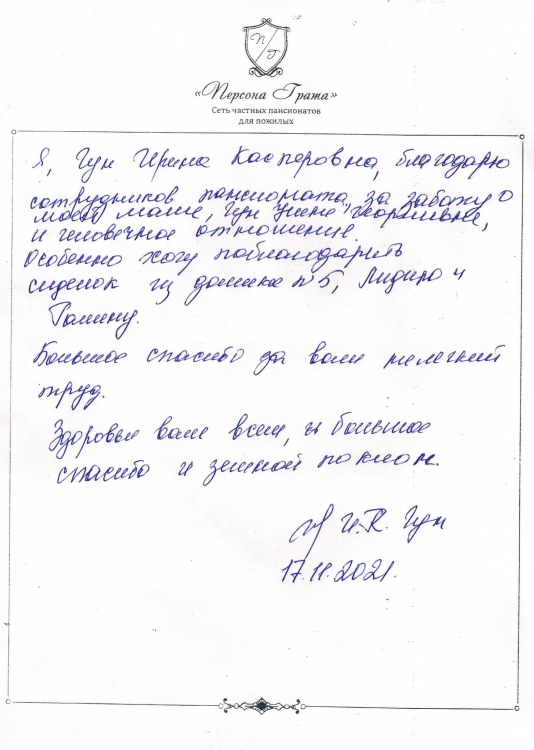 П
Г
«Персона Грата»
Сеть частных пансионатов
для пожилых
Я, Гун Ирина Касперовна, благодарю
сотрудников пансионата, за заботу о
моей маме, Гун Георгиевне,
и человечное отношение.
Особенно хочу поблагодарить
сиделок из домика №5, Лидию и
Галину.
Большое спасибо за ваш нелегкий
труд.
Здоровья вам всем, и большое
спасибо и земной поклон.
И.К. Гун
17.11.2021.